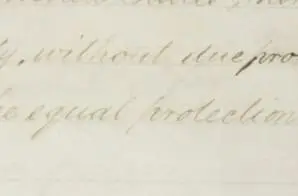 y, without due pro
e equal protection